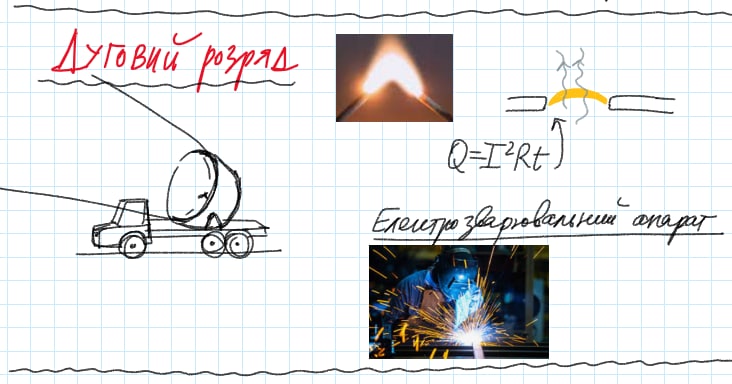 Дуговий розряд
Q=I²Rt
Електрозварювальний апарат